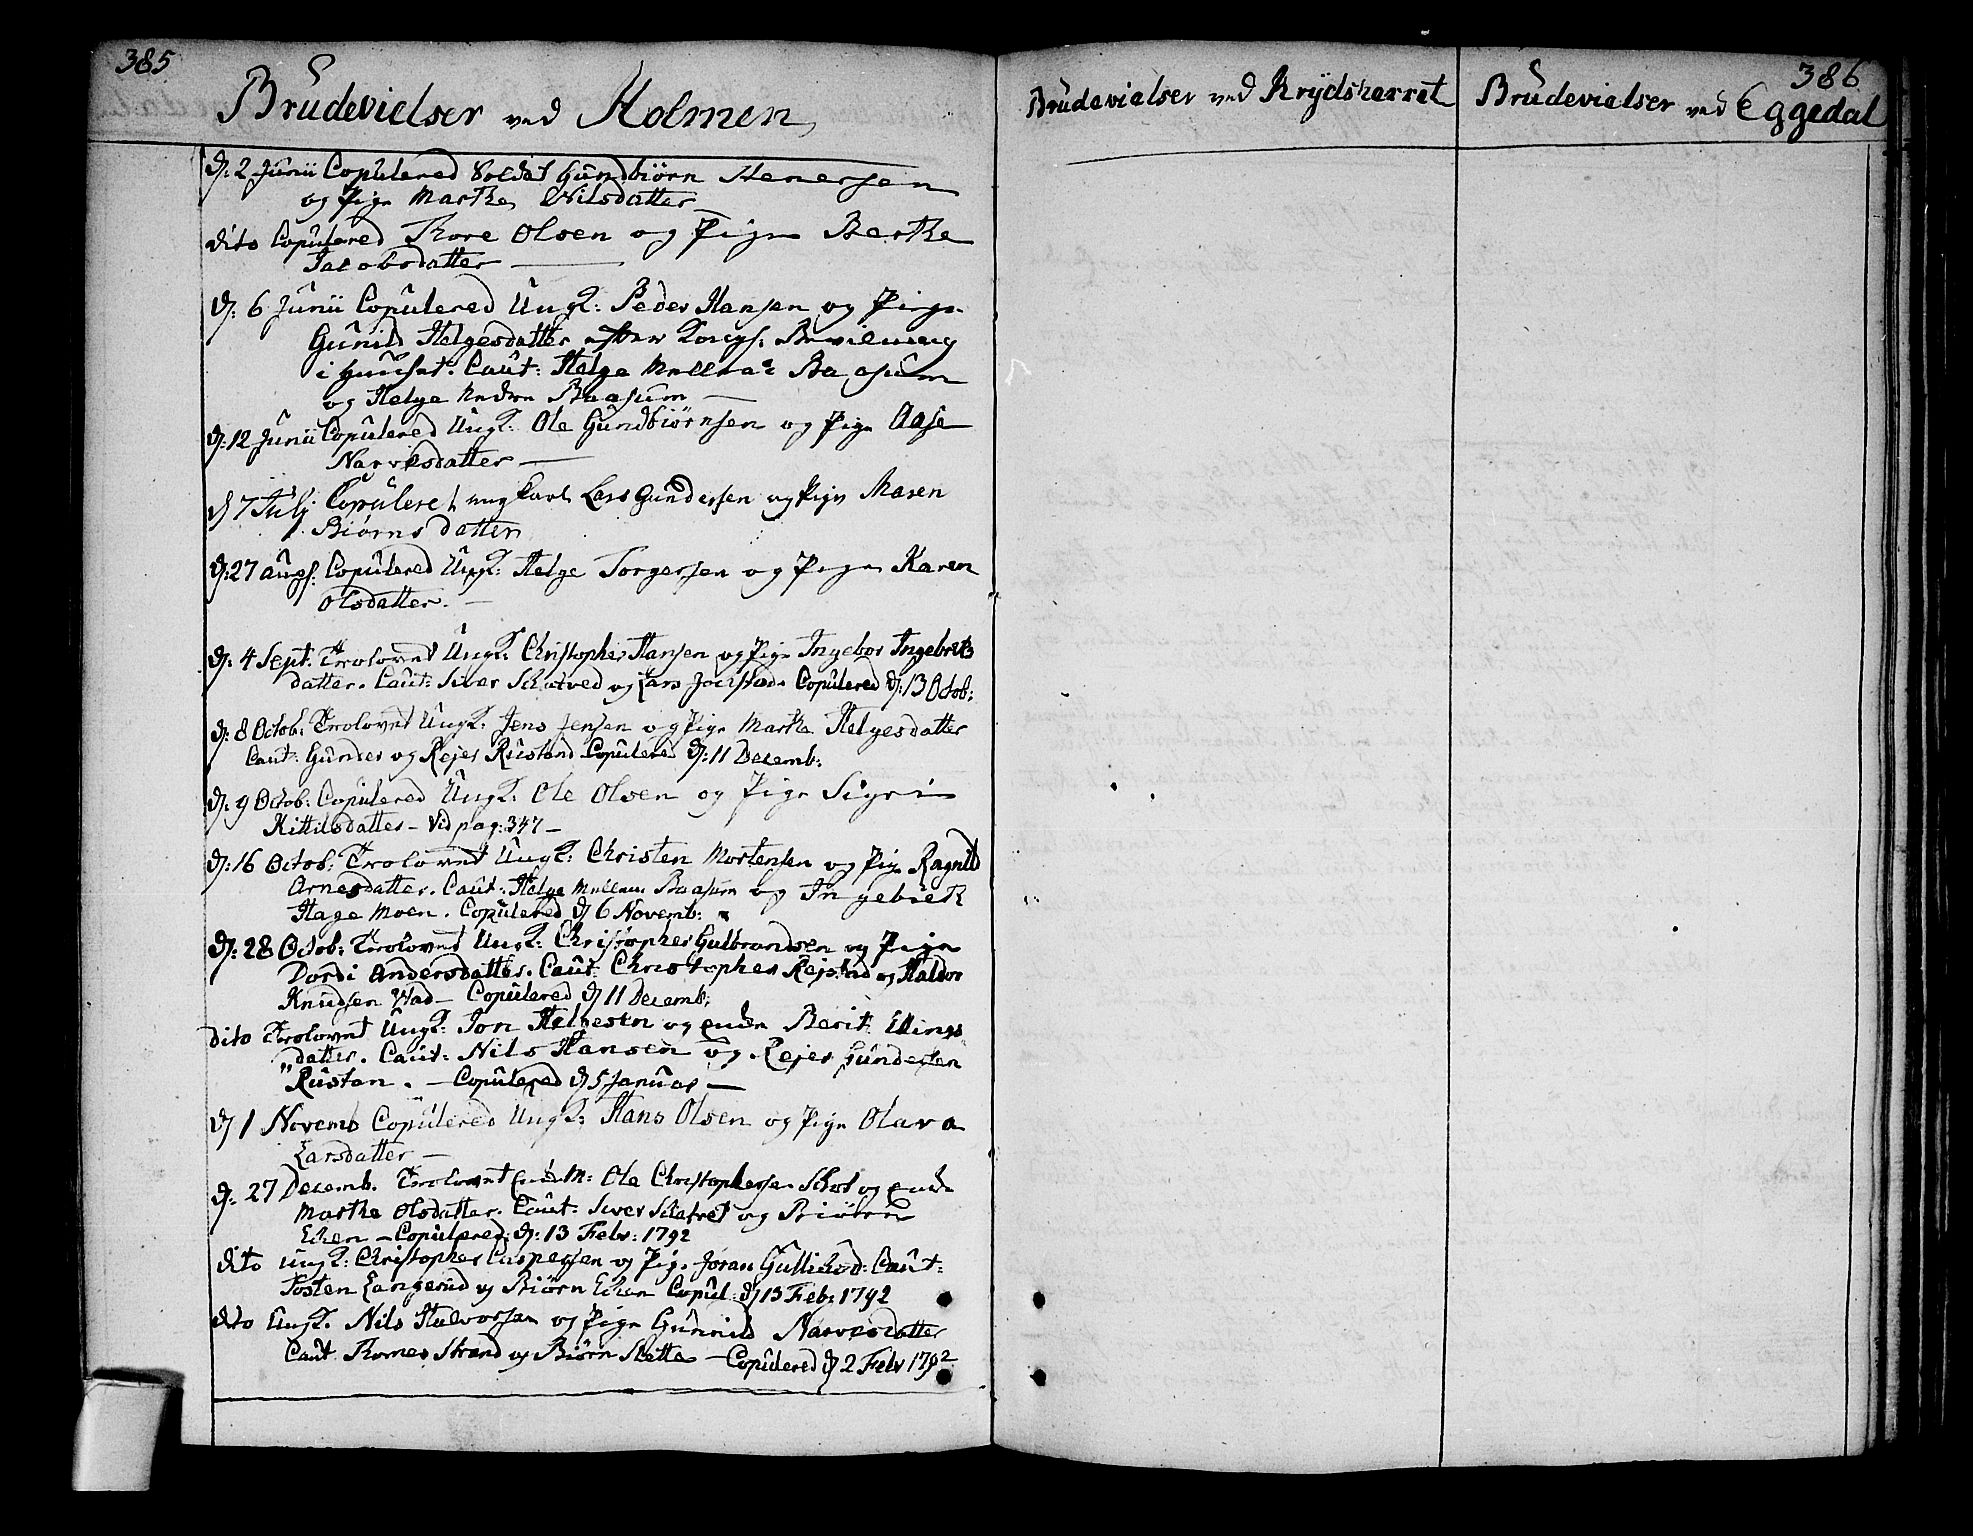 385
Brudevielser ved Holmen
d: 2 Junii Copulered Soldat Gundbiørn Stenersen
og Pige Marthe Nilsdatter
dito Copulered Thore Olsen og Pige Berthe
Jacobsdatter
d: 6 Junii Copulered Ungk: Peder Hansen og Pige
Gunild Helgesdatter efter Kongs: Bevilning
i Huuset. Caut: Helge Mellem Baasum
og Helge Nedre Baasum
d: 12 Junii Copulered Ungk: Ole Gundbiørnsen og Pige Aase
Narvesdatter
d 7 Julj Copuleret ung Karl Lars Gundersen og Pige Maren
Biørnsdatter
d: 27 augs: Copulered Ungk: Helge Torgersen og Pige Karen
Olsdatter.
d: 4 Sept. Trolovet Ungk: Christopher Hansen og Pige Ingebor Ingebrets
datter. Caut: Siver og Lars Copulered d: 13 Octob:
d: 8 Octob: Trolovet Ungk: Jens Jensen og Pige Marthe Helgesdatter
Caut: Gunder og Rejer Rustand Copulered d: 11 Decemb:
d: 9 Octob: Copulered Ungk: Ole Olsen og Pige Sigri
Kittilsdatter – Vid pag: 347 –
d: 16 Octob: Trolovet Ungk: Christen Mortensen og Pige Ragnild
Arnesdatter. Caut: Helge Mellem Baasum og Ingebret
Hage Moen. Copulered d 6 Novemb:
d: 28 Octob: Trolovet Ungk: Christopher Gulbrandsen og Pige
Dordi Andersdatter. Caut: Christopher og Haldor
Knudsen Wad – Copulered d 11 Decemb:
dito Trolovet Ungk: Jon Helgesen og enke Berit Ellings
datter. Caut: Nils Hansen og Rejer Gundersen
Rustan. – Copulered d 5 Januar –
d 1 Novemb Copulered Ungk: Hans Olsen og Pige Olava
Larsdatter –
d: 27 Decemb. Trolovet Enkem: Ole Christophersen og enke
Marthe Olsdatter. Caut: Siver og Biörn
Eken – Copulered: d: 13 Febr: 1792
dito ungk: Christopher Caspersen og Pig. Joran Caut:
Tosten Langerud og Biørn Eken Copul: d 13 Feb: 1792
dito Ungk. Nils Halvorsen og Pige Gunnild Narvesdatter
Caut. Thomes Strand og Biørn Slette – Copulered d 2 Febr 1792
Brudevielser ved Krydsherret
386
Brudevielser ved Eggedal